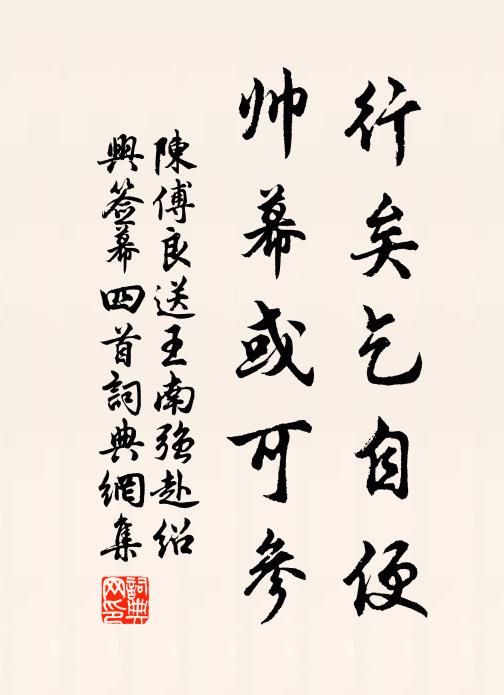 行矣乞自便
帅幕或可參
陳傅良送王南强赴绍
興签幕四首詞典網集
詞典網印